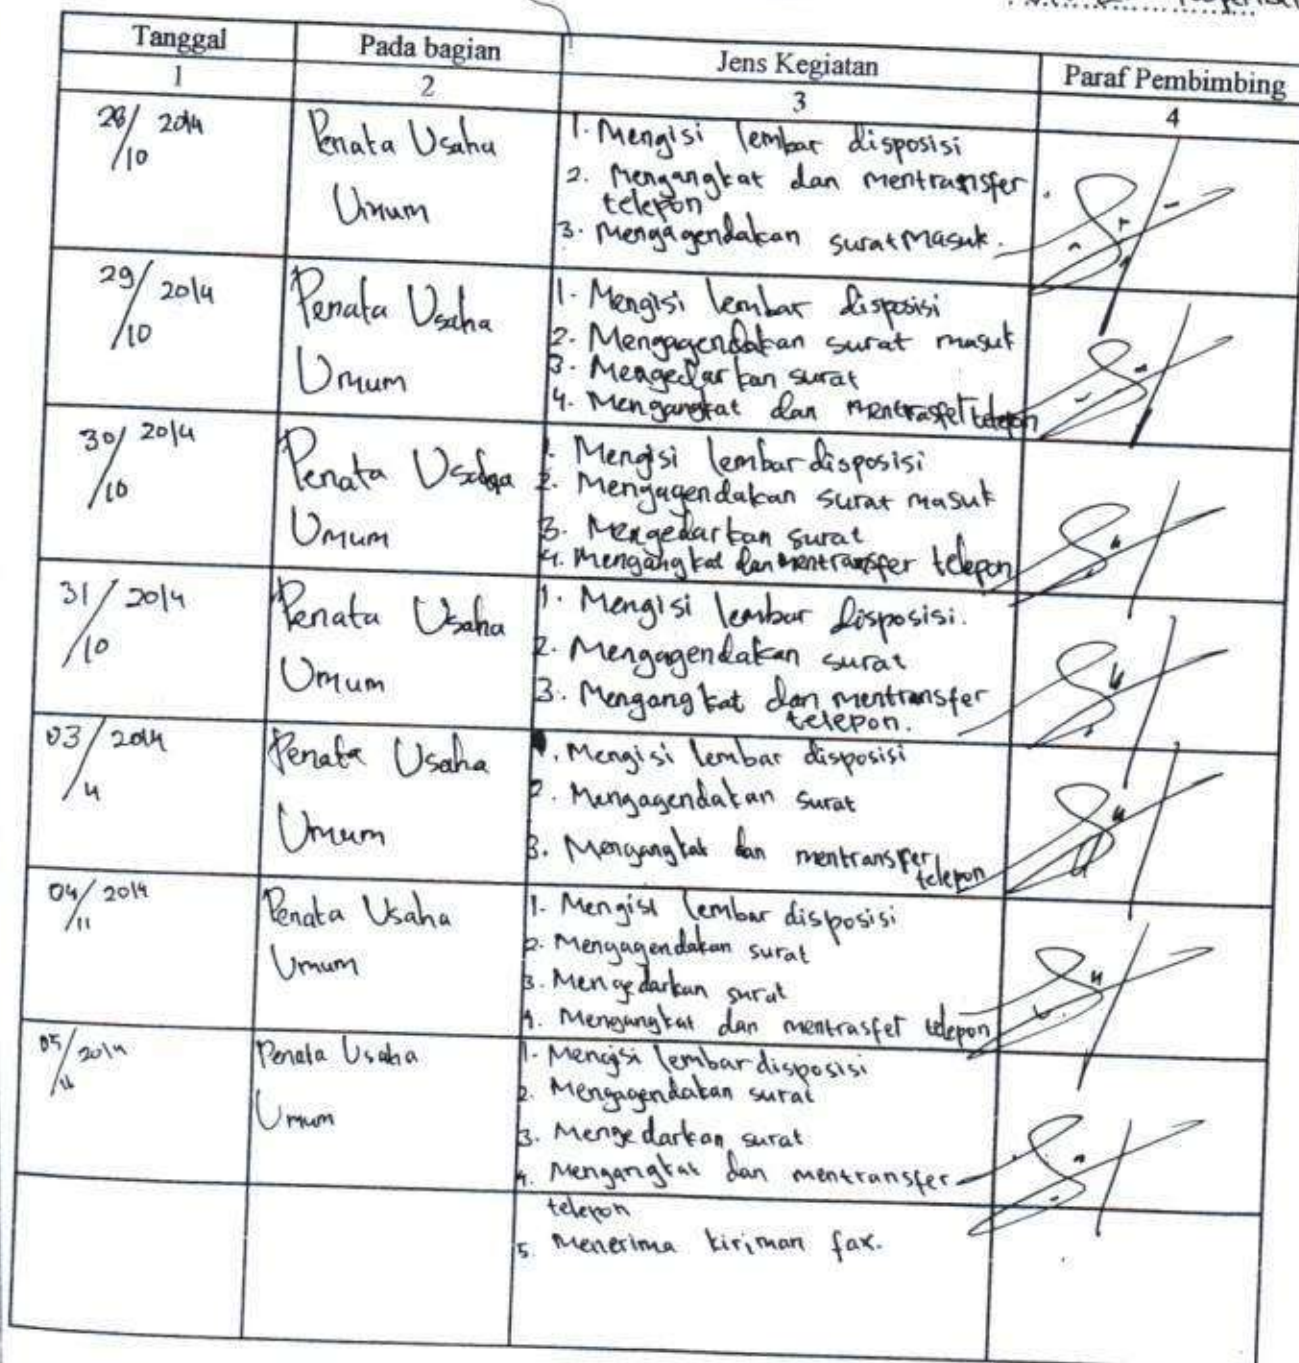 Tanggal Pada bagian Jens Kegiatan Paraf Pembimbing
1 2 3 4
28/10 2014
Penata Usaha
Umum
1. Mengisi lembar disposisi
2. Mengangkat dan mentransfer
telepon
3. Mengagendakan surat masuk.
29/10 2014
Penata Usaha
Umum
1. Mengisi lembar disposisi
2. Mengagendakan surat masuk
3. Mengedarkan surat
4. Mengangkat dan mentrasfer telepon
30/10 2014
Penata Usaha
Umum
1. Mengisi lembar disposisi
2. Mengagendakan surat masuk
3. Mengedarkan surat
4. Mengangkat dan mentransfer telepon
31/10 2014
Penata Usaha
Umum
1. Mengisi lembar disposisi.
2. Mengagendakan surat
3. Mengangkat dan mentransfer
telepon.
03/11 2014
Penata Usaha
Umum
1. Mengisi lembar disposisi
2. Mengagendakan surat
3. Mengangkat dan mentransfer
telepon
04/11 2014
Penata Usaha
Umum
1. Mengisi lembar disposisi
2. Mengagendakan surat
3. Mengedarkan surat
4. Mengangkat dan mentrasfer telepon
05/11 2014
Penata Usaha
Umum
1. Mengisi lembar disposisi
2. Mengagendakan surat
3. Mengedarkan surat
4. Mengangkat dan mentransfer
telepon
5. Menerima kiriman fax.